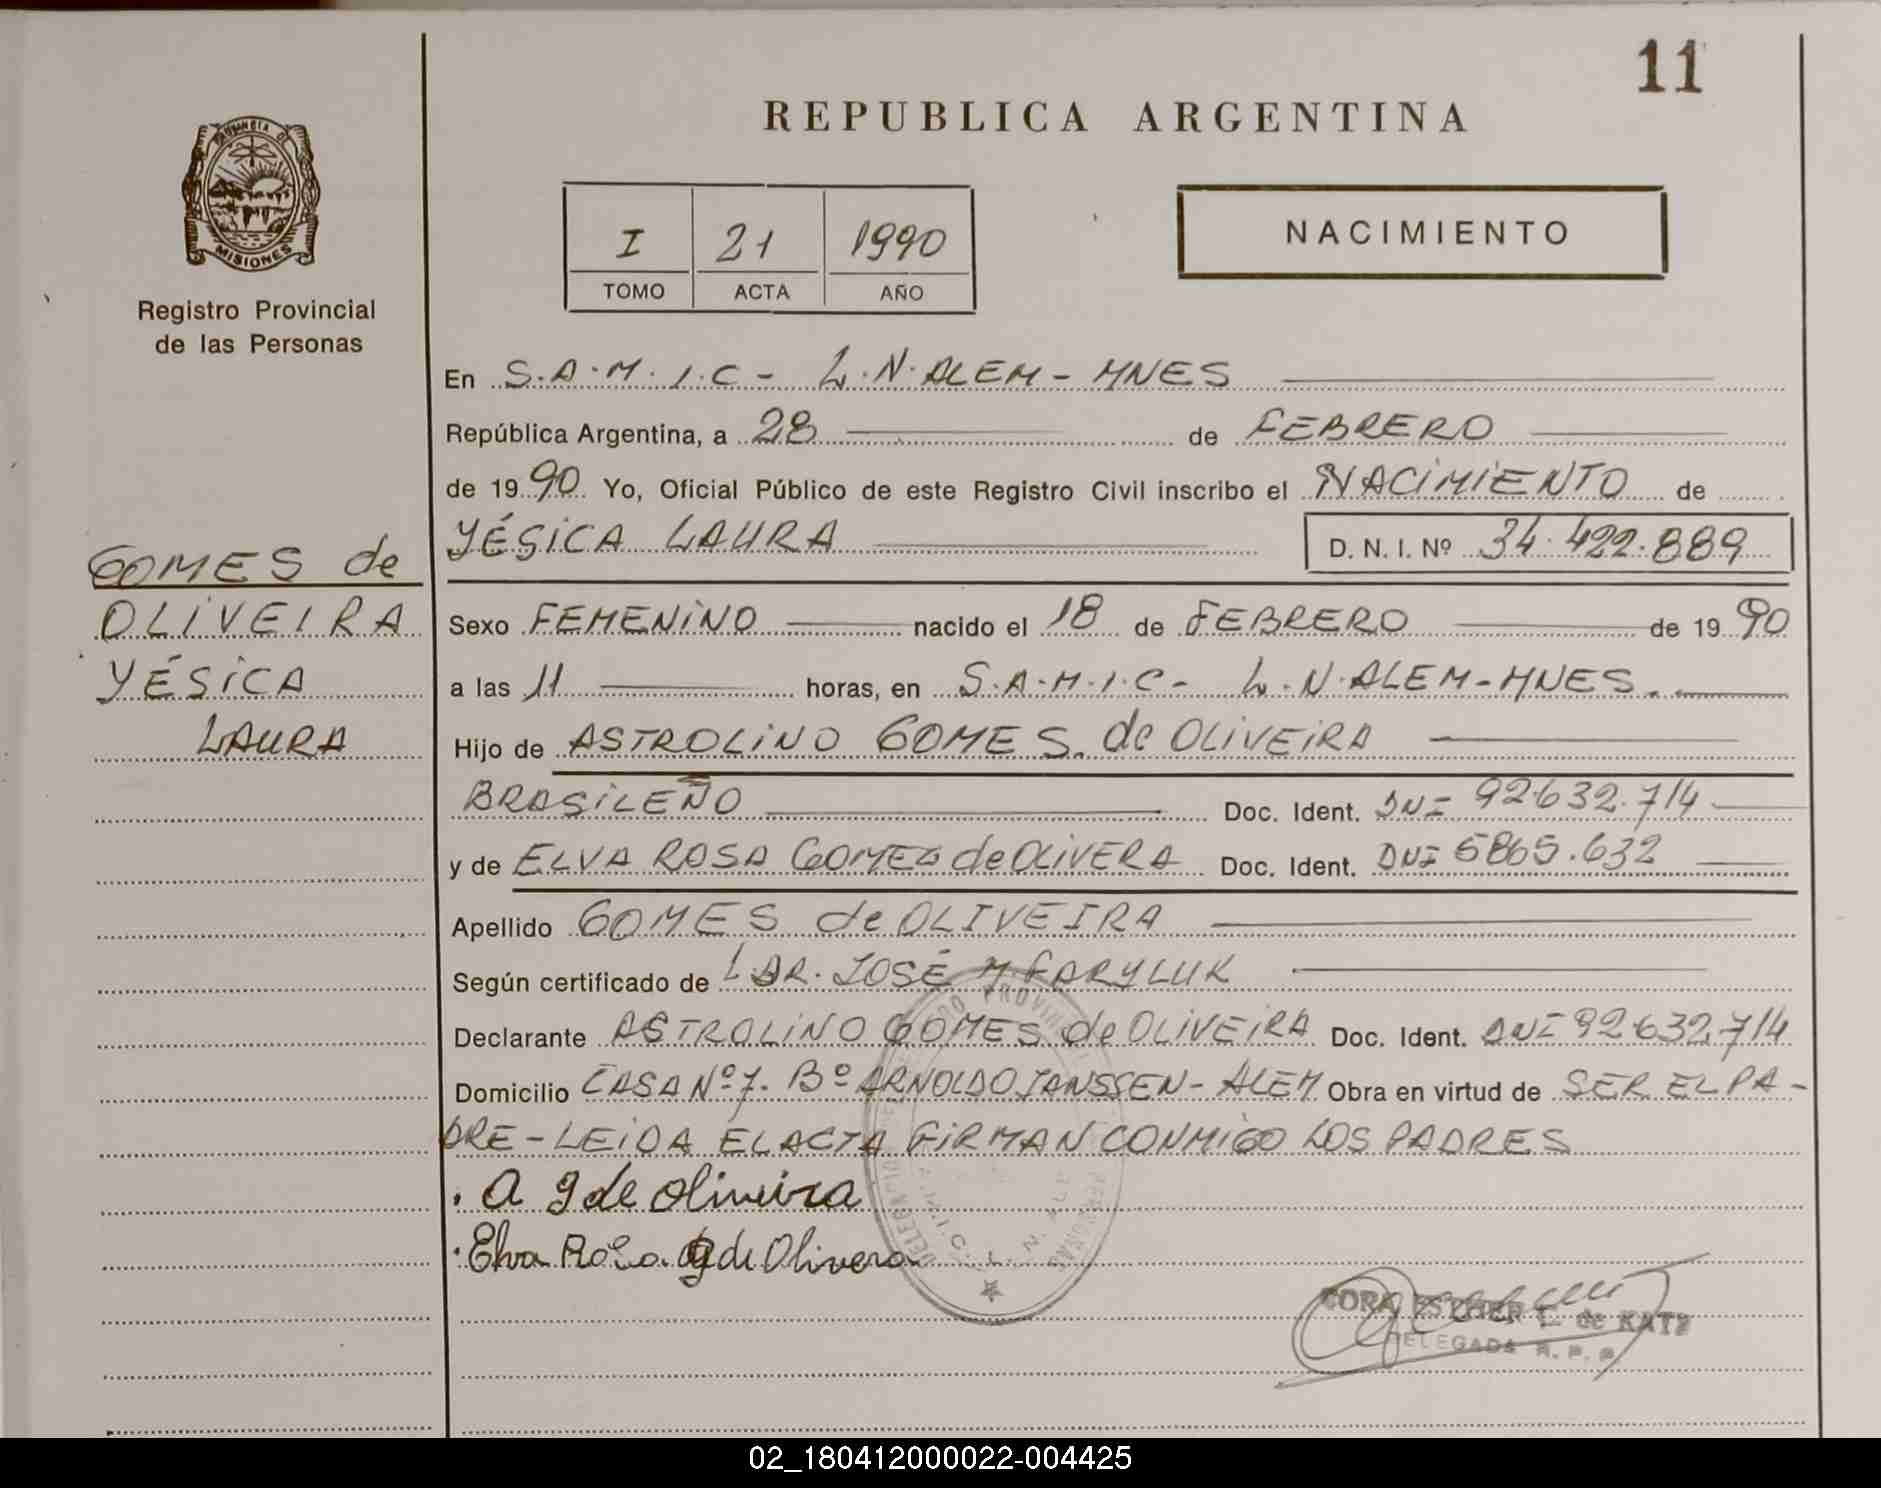 11
REPUBLICA ARGENTINA
PROVINCIA DE
MISIONES
Registro Provincial
de las Personas
I 21 1990
TOMO ACTA AÑO
NACIMIENTO
En S.A.M.I.C - L.N.ALEM - MNES
República Argentina, a 28 de FEBRERO
de 1990 Yo, Oficial Público de este Registro Civil inscribo el NACIMIENTO de
YÉSICA LAURA D. N. I. Nº 34.422.889
GOMES de
OLIVEIRA
YÉSICA
LAURA
Sexo FEMENINO nacido el 18 de FEBRERO de 1990
a las 11 horas, en S.A.M.I.C - L.N.ALEM-MNES.
Hijo de ASTROLINO GOMES de OLIVEIRA
BRASILEÑO Doc. Ident. DNI 92.632.714
y de ELVA ROSA GOMES de OLIVERA Doc. Ident. DNI 5865.632
Apellido GOMES de OLIVEIRA
Según certificado de DR. JOSÉ M. FARYLUK
Declarante ASTROLINO GOMES de OLIVEIRA Doc. Ident. DNI 92.632.714
Domicilio CASA Nº 7. Bº ARNOLDO JANSSEN - ALEM Obra en virtud de SER EL PA-
DRE - LEIDA EL ACTA FIRMAN CONMIGO LOS PADRES
. A g de oliveira
. Elva Rosa g de Olivera
CORA ESTHER de KATZ
DELEGADA R. P. P.
02_180412000022-004425